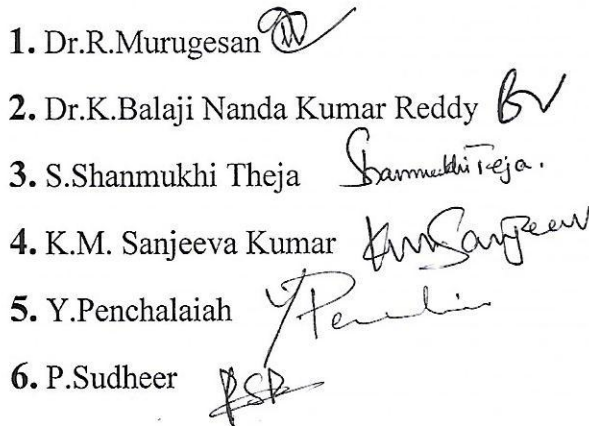 1. Dr.R.Murugesan
2. Dr.K.Balaji Nanda Kumar Reddy
3. S.Shanmukhi Theja Shanmukhi Teja.
4. K.M. Sanjeeva Kumar
5. Y.Penchalaiah
6. P.Sudheer